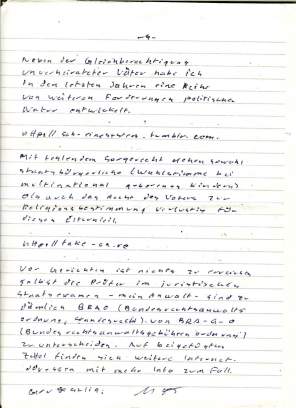 -4-
Neben der Gleichberechtigung
unverheirateter Väter habe ich
in den letzten Jahren eine Reihe
von weiteren Forderungen politischer
Natur entwickelt.
.tumblr.com.
Mit fehlendem Sorgerecht gehen sowohl
staatsbürgerliche (Wahlstimme bei
multinational geborenen Kindern)
als auch das Recht des Vaters zur
Religionsbestimmung verlustig für
diesen Elternteil.
Vor Gerichten ist nichts zu erreichen
selbst die Prüfer im juristischen
Staatsexamen - mein Anwalt - sind zu
dämlich BRAO (Bundesrechtsanwalts
ordnung, Standesrecht) von BRA-G-O
(Bundesrechtsanwaltsgebühren ordnung)
zu unterscheiden. Auf beigefügtem
Zettel finden sich weitere Internet-
adressen mit mehr Info zum Fall.